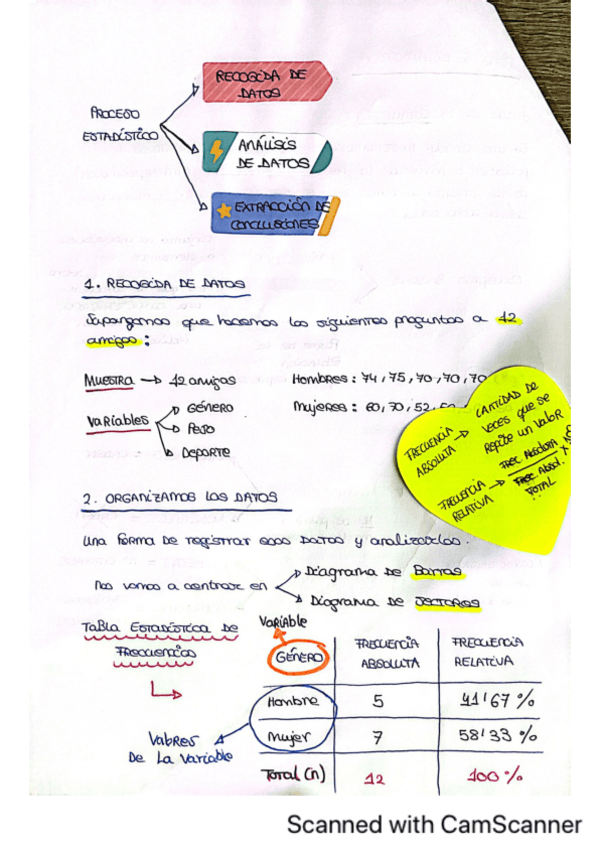 PROCESO
ESTADÍSTICO
RECOGIDA DE
DATOS
ANÁLISIS
DE DATOS
EXTRACCIÓN DE
CONCLUSIONES
1. RECOGIDA DE DATOS
Supongamos que hacemos las siguientes preguntas a 12
amigos:
MUESTRA → 12 amigos
Hombres: 74, 75, 70, 70, 70
Variables
GÉNERO
PESO
DEPORTE
Mujeres: 60, 70, 52, 52
FRECUENCIA
ABSOLUTA →
CANTIDAD DE
veces que se
Repite un Valor
FRECUENCIA
RELATIVA →
Frec Absoluta
Frec Absol. TOTAL
x 100
2. ORGANIZAMOS LOS DATOS
Una forma de registrar esos datos y analizarlos.
Nos vamos a centrar en
Diagrama de Barras
Diagrama de SECTORES
TaBla Estadística de
Frecuencias
Variable
GÉNERO
FRECUENCIA
ABSOLUTA
FRECUENCIA
RELATIVA
Hombre 5 41'67 %
Mujer 7 58'33 %
Total (n) 12 100 %
Valores
De La Variable
Scanned with CamScanner